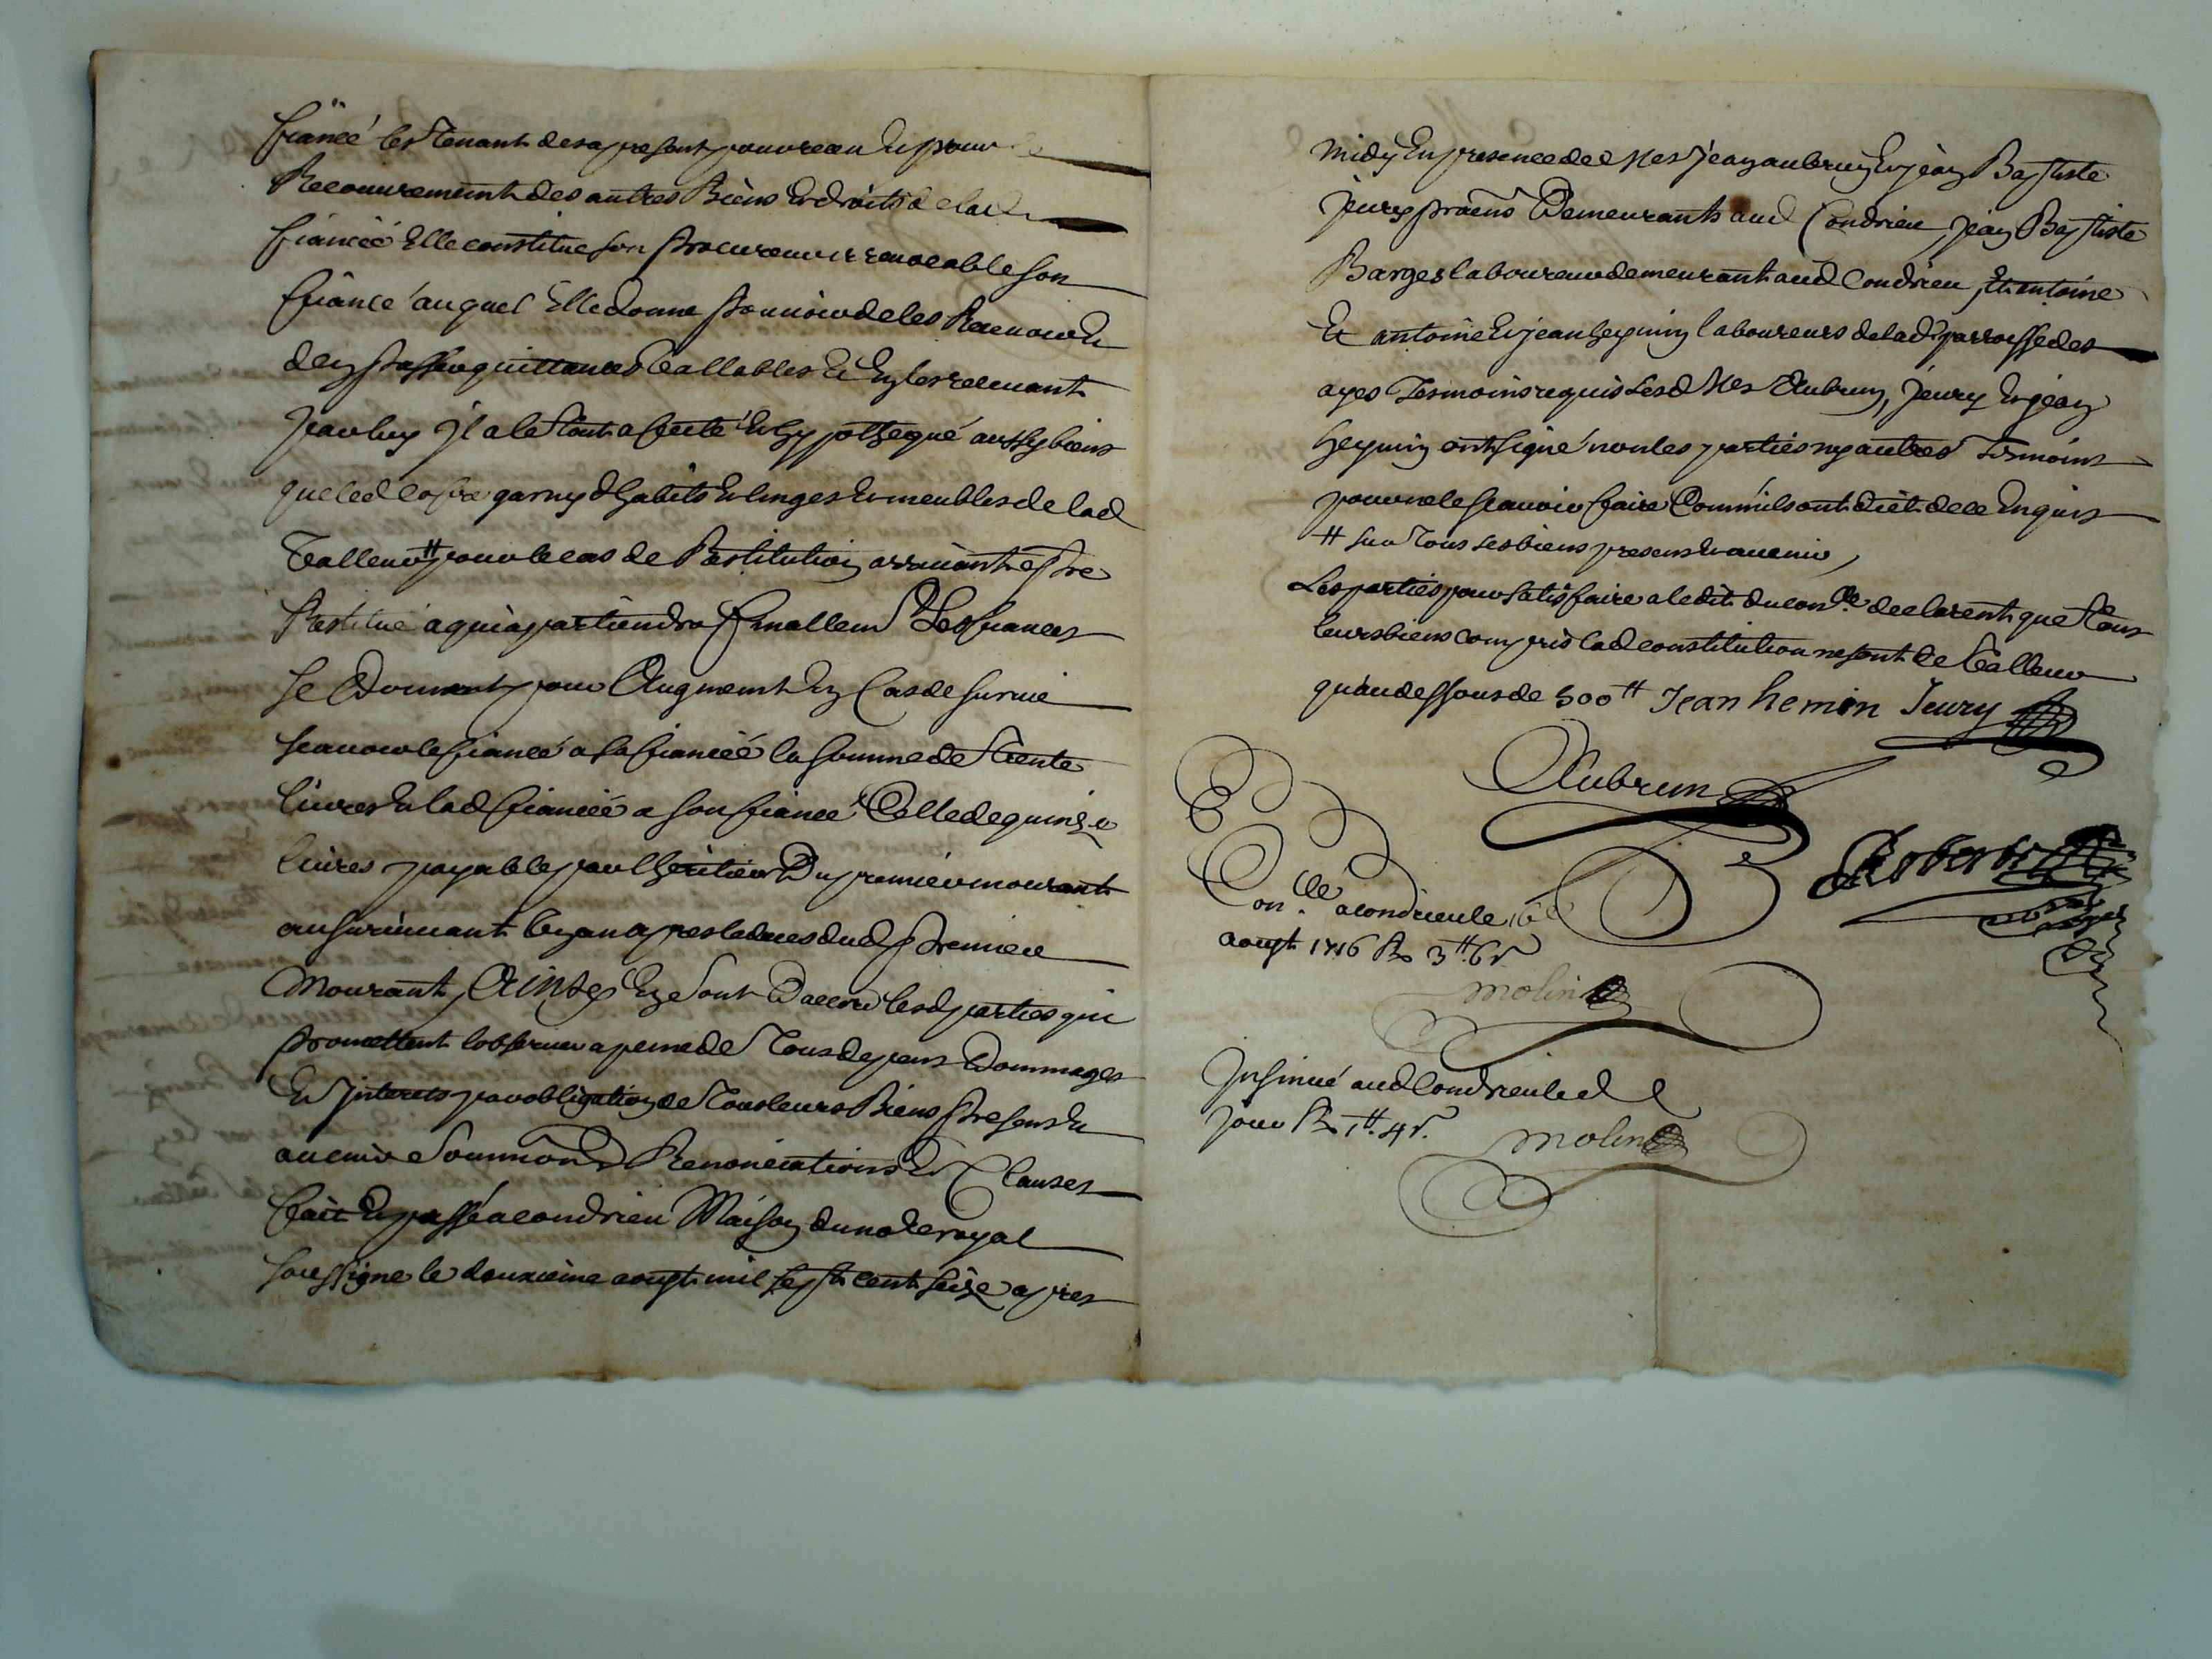 fiancé les Tenant des apresant pour receu Et pour le
Recouurement des autres Biens Et droits de lad
fianceé Elle constitue son procureur irreuocable son
fiancé auquel Elle donne pouuoir de les Receuoir Et
den passer quittances Vallables Et En les receuant
par luy Il a le tout afecté Et hypothequé aussy biens
que led cofre garny d'habits Et linges Et meubles de lad
Valleur # pour le cas de Restitution arriuant estre
Restitué a qui apartiendra finallem Les fiances
se donnent pour Augment En Cas de suruie
scauoir le fiancé a sa fianceé la somme de trente
liures Et lad fianceé a son fiancé Celle de quinze
liures payable par lheritier Du premier mourant
au suruiuant Un an apres le deces dud premier
Mourant, Ainsy En sont D'accord lesd parties qui
promettent lobseruer a peine de Tous depens Dommages
Et Interets par obligation de Tous leurs Biens presens Et
auenir Soumons Renonciations Et Clauses
fait Et passé a condrieu Maison du note royal
soussigne le deuxieme aougt mil sept cent seize apres
midy En presence de Mes Jean aubrun Et jean Baptiste
jeury praens Demeurants aud Condrieu, jean Baptiste
Barges laboureur demeurant aud Condrieu, Et antoine
Et antoine Et jean heymin laboureurs de lad parroisse des
ayes Tesmoins requis Lesd Mes Aubrun, Jeury Et jean
heymin ont signé non les parties ny autres Tesmoins
pour ne le scauoir faire Comm'ils ont diet de ce Enquis
# sur Tous ses biens presens Et auenir,
Les parties pour satisfaire a ledit du con.lle declarent que Tous
leurs biens compris lad constitution ne sont de Valleur
qu'au dessous de 500 # Jean hemin Jeury
Aubrun
Robert
Con.lle a condrieu le 16e
aougt 1716 R 3 # 6 s
molin
Insinué aud Condrieu led
jour R 1 # 4 s.
molin